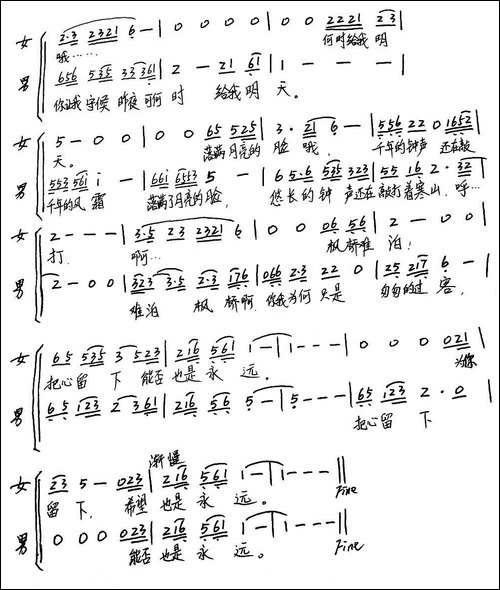 女 2·3 2321 6 - | 0 0 0 0 | 0 0 2221 23 |
哦…… 何时给我 明
男 656 535 33 361 | 2 - 21 61 | 1 - - - |
守候 昨夜 何 时 给我 明 天。
女 5 - 0 0 | 0 0 65 525 | 3 · 21 6 - | 556 22 0 1652 |
天。 落满 月亮的 脸 哦, 千年的 钟声 还在敲
男 553 561 i - | 661 6553 5 - | 6 5·6 535 323 | 55 16 2 · 32 |
千年的 风 霜 落满了 月亮的 脸, 悠长的 钟 声还在 敲打着 寒山, 呼…
女 2 - - - | 3·5 23 2321 6 | 0 0 06 56 | 2 - 0 0 |
打. 啊… 枫 桥难 泊;
男 2 - 0 0 | 323 3·5 2·3 176 | 066 2·3 22 0 | 25 217 6 - |
难泊 枫 桥啊, 你我 为何 只是 匆匆的 过 客,
女 65 535 3 523 | 216 561 1 - | 1 - - - | 0 0 0 021 |
把心 留 下 能否 也是 永 远。 为你
男 65 123 2 361 | 216 56 5 - | 5 - - - | 65 123 2 · 0 |
把心 留 下
渐慢
女 23 5 - 023 | 216 561 1 - | 1 - - - || Fine
留 下, 希望 也是 永 远。
男 0 0 0 023 | 216 561 1 - | 1 - - - || Fine
能否 也是 永 远。